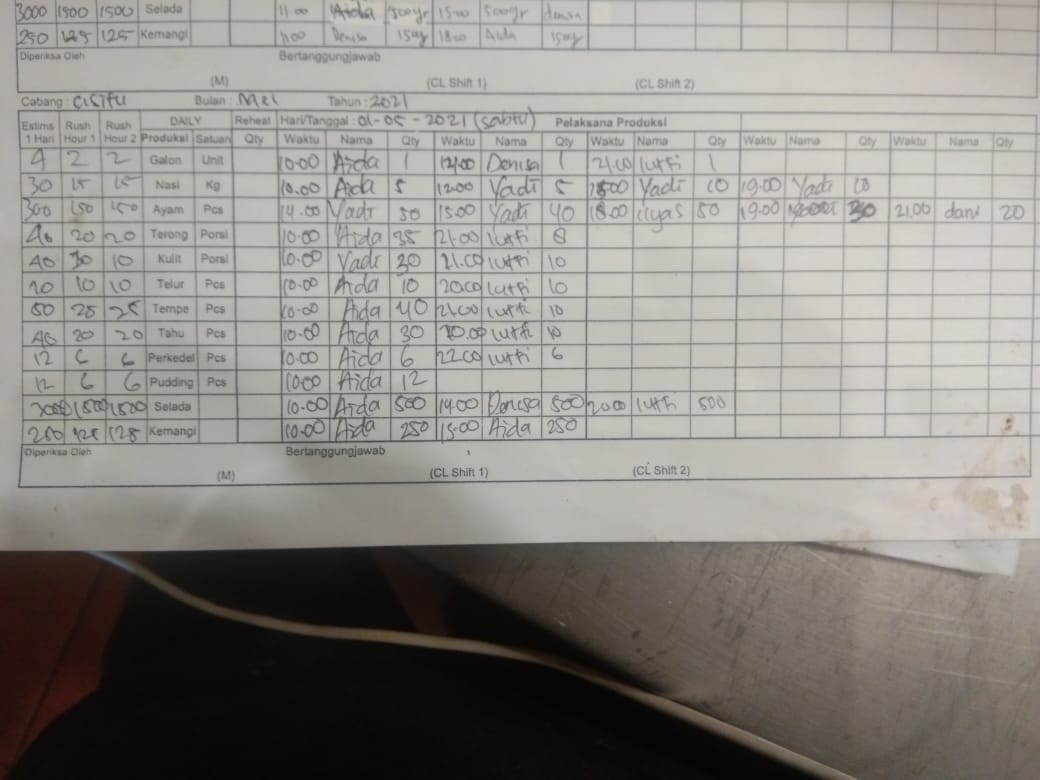 3000 1500 1500 Selada 11.00 Aida 500gr 15.00 500gr denisa
250 125 125 Kemangi 11.00 Denisa 15gr 18.00 Aida 15gr
Diperiksa Oleh Bertanggungjawab
(M) (CL Shift 1) (CL Shift 2)
Cabang : CISITU Bulan : Mei Tahun : 2021
Estims 1 Hari Rush Hour 1 Rush Hour 2 DAILY Produksi Satuan Reheat Qty Hari/Tanggal : 01-05-2021 (sabtu) Pelaksana Produksi
Waktu Nama Qty Waktu Nama Qty Waktu Nama Qty Waktu Nama Qty Waktu Nama Qty
4 2 2 Galon Unit 10.00 Aida 1 Denisa 1 21.00 lutfi 1
30 15 15 Nasi Kg 10.00 Aida 5 12.00 Yadi 5 Yadi 10 19.00 Yadi 10
300 150 150 Ayam Pcs 14.00 Yadi 50 15.00 Yadi 40 18.00 50 19.00 30 21.00 dani 20
20 20 Terong Porsi 10.00 Aida 35 21.00 lutfi 8
40 30 10 Kulit Porsi 10.00 Yadi 30 21.00 lutfi 10
20 10 10 Telur Pcs 10.00 Aida 10 20.00 lutfi 10
50 25 25 Tempe Pcs 10.00 Aida 40 21.00 lutfi 10
20 20 Tahu Pcs 10.00 Aida 30 20.00 lutfi 10
12 6 6 Perkedel Pcs 10.00 Aida 6 22.00 lutfi 6
12 6 6 Pudding Pcs 10.00 Aida 12
3000 1500 1500 Selada 10.00 Aida 500 14.00 Denisa 500 20.00 lutfi 500
250 125 125 Kemangi 10.00 Aida 250 15.00 Aida 250
Diperiksa Oleh Bertanggungjawab
(M) (CL Shift 1) (CL Shift 2)